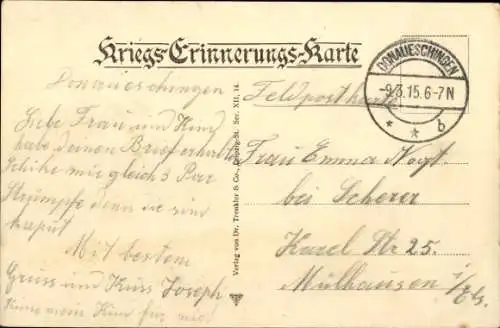 Kriegs-Erinnerungs-Karte
DONAUESCHINGEN
-9.3.15.6-7N
* * b
Feldpostkarte
Donaueschingen
Liebe Frau und Kind
habe deinen Brief erhalten
Schike mir gleich 3 Par
Strümpfe denn sie sind
kaput
Mit bestem
Gruss und Kuss Joseph
Küsse mein Kind für mich
Verlag von Dr. Trenkler & Co., Leipzig-St. Ser. XII, 14.
Frau Emma Vogt
bei Scherer
Str 25.
Mülhausen i/Els.